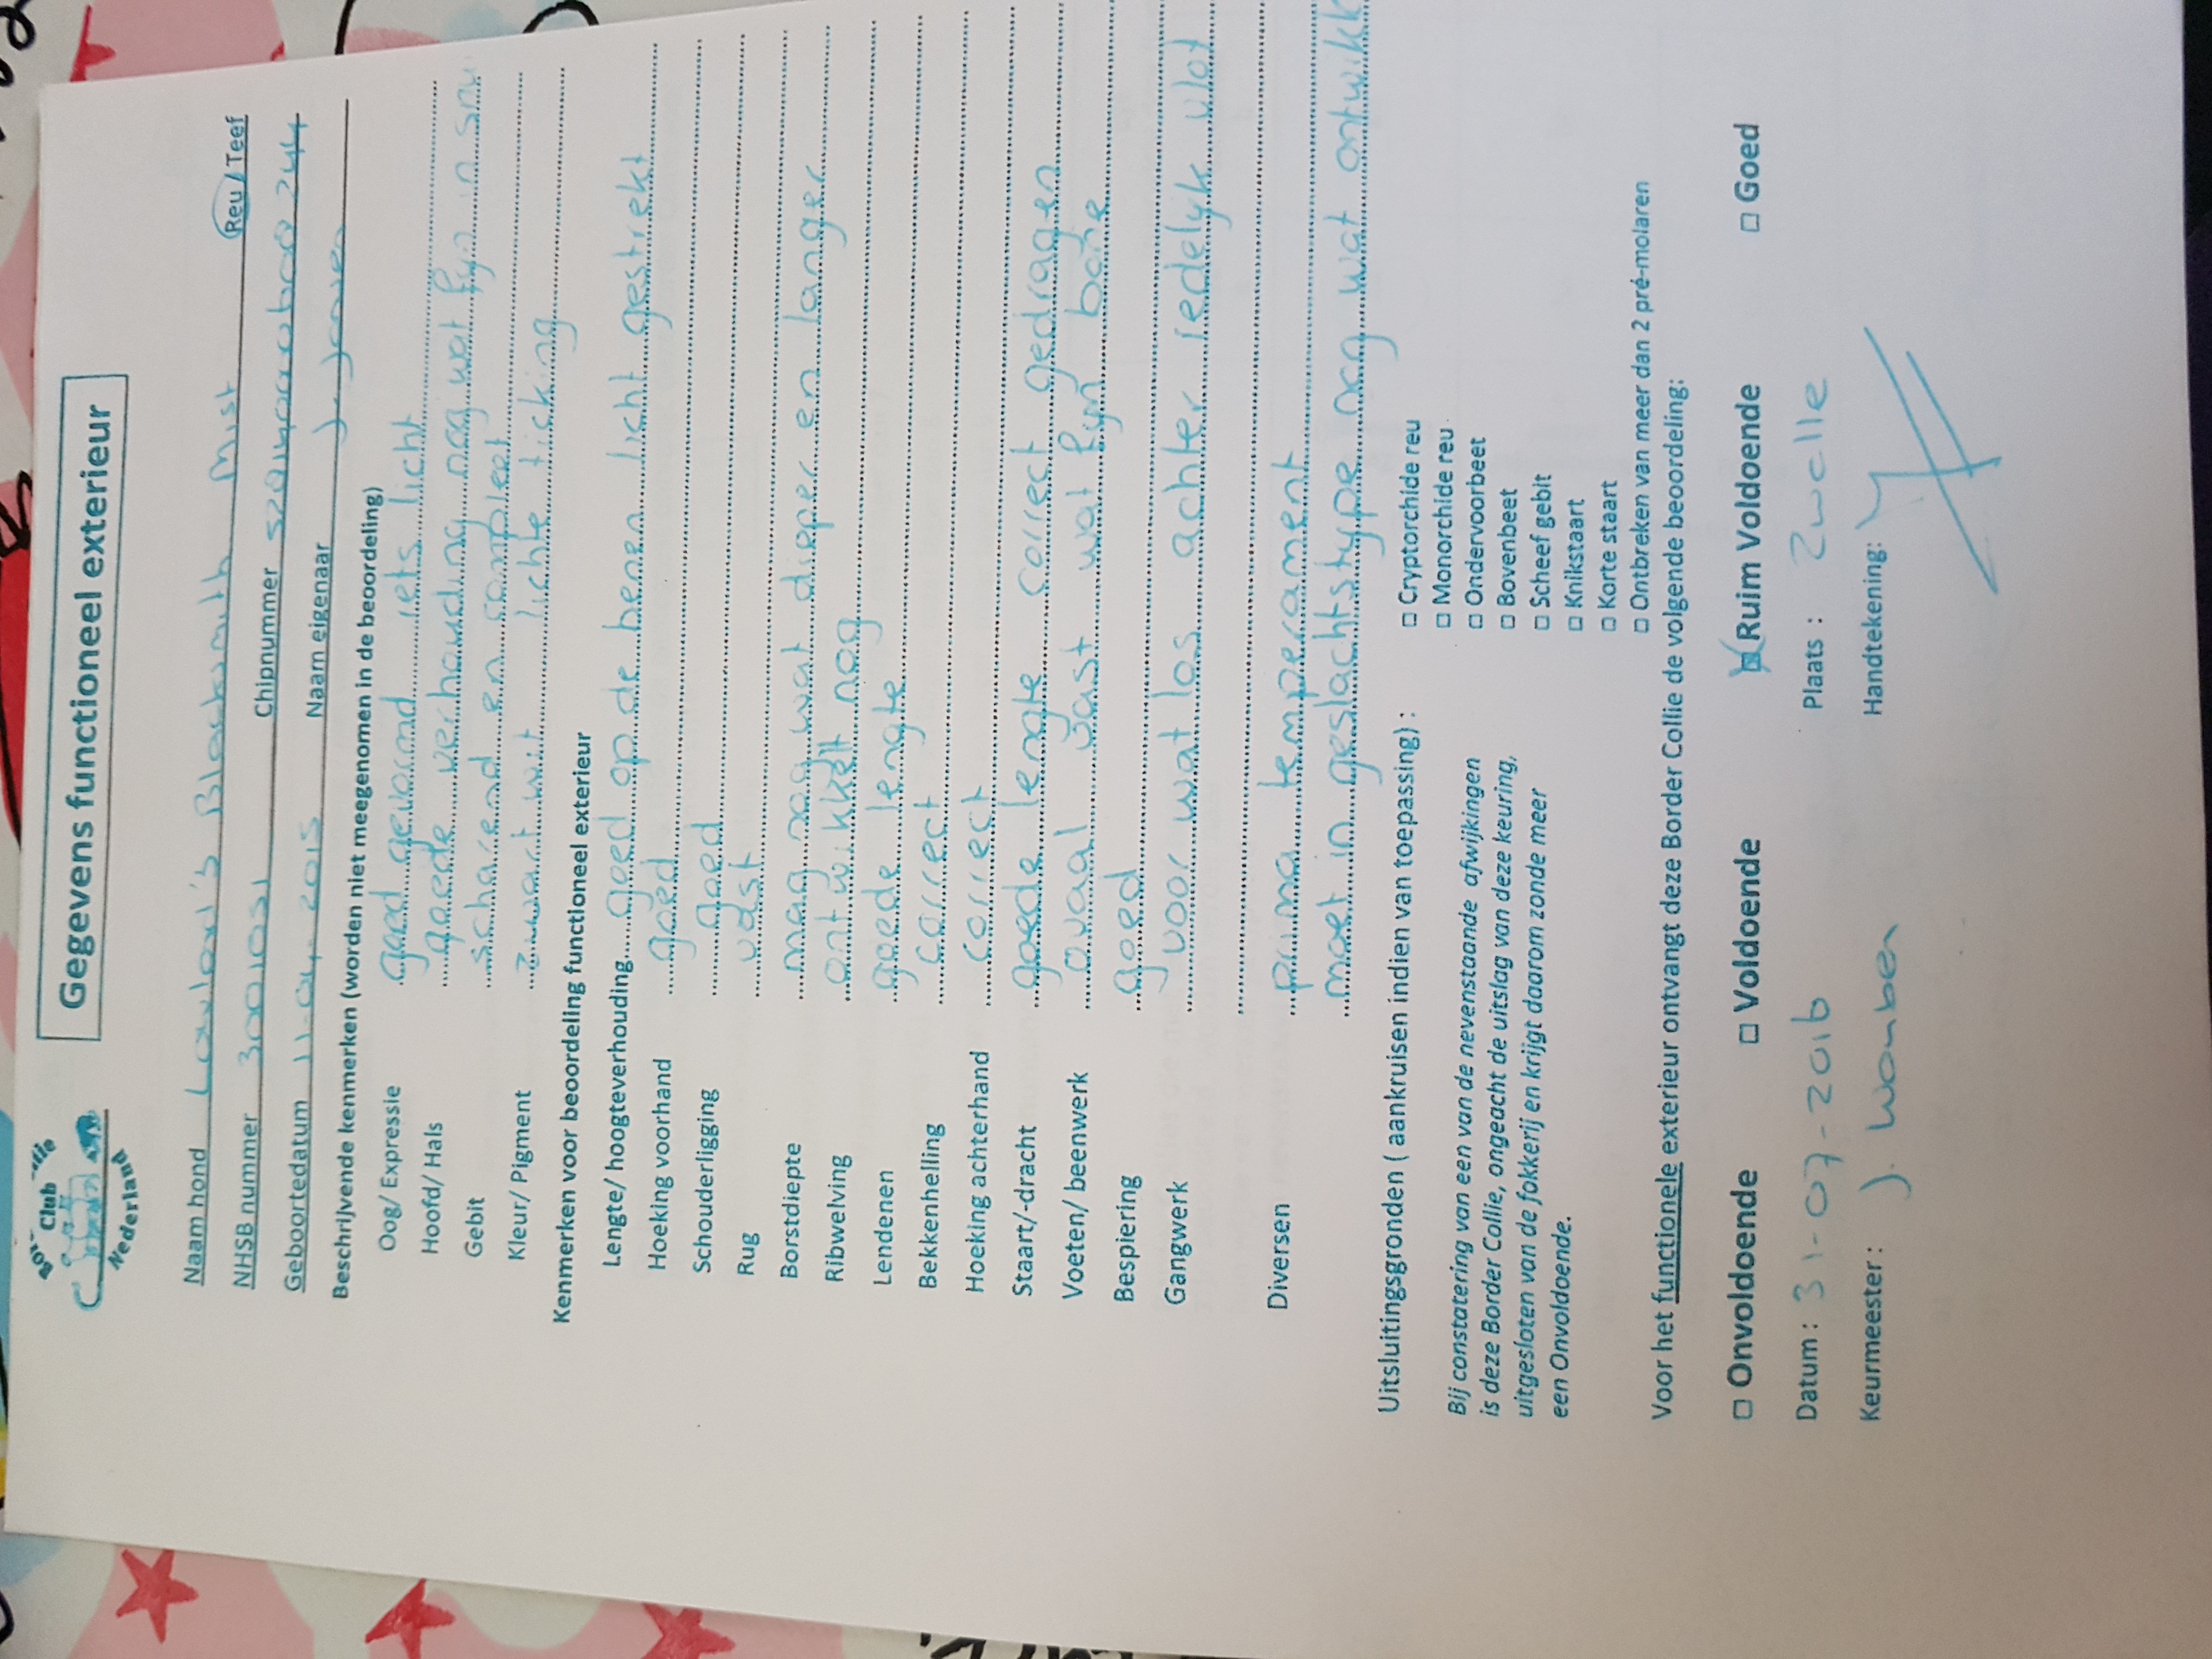 Club
Nederland
Gegevens functioneel exterieur
Naam hond Mist Reu / Teef
NHSB nummer 3001051 Chipnummer
Geboortedatum 11-04-2015 Naam eigenaar J.
Beschrijvende kenmerken (worden niet meegenomen in de beoordeling)
Oog/ Expressie goed gevormd iets licht
Hoofd/ Hals goede verhouding nog wat fyn in
Gebit scharend en compleet
Kleur/ Pigment zwart wit lichte ticking
Kenmerken voor beoordeling functioneel exterieur
Lengte/ hoogteverhouding goed op de benen licht gestrekt
Hoeking voorhand goed
Schouderligging goed
Rug vast
Borstdiepte mag nog wat dieper en langer
Ribwelving ontwikkelt nog
Lendenen goede lengte
Bekkenhelling correct
Hoeking achterhand correct
Staart/-dracht goede lengte correct gedragen
Voeten/ beenwerk ovaal vast wat fyn bone
Bespiering goed
Gangwerk voor wat los achter redelyk vlot
Diversen prima temperament
moet in geslachtstype nog wat
Uitsluitingsgronden ( aankruisen indien van toepassing) :
□ Cryptorchide reu
□ Monorchide reu
□ Ondervoorbeet
□ Bovenbeet
□ Scheef gebit
□ Knikstaart
□ Korte staart
□ Ontbreken van meer dan 2 pré-molaren
Bij constatering van een van de nevenstaande afwijkingen
is deze Border Collie, ongeacht de uitslag van deze keuring,
uitgesloten van de fokkerij en krijgt daarom zonde meer
een Onvoldoende.
Voor het functionele exterieur ontvangt deze Border Collie de volgende beoordeling:
□ Onvoldoende □ Voldoende ☒ Ruim Voldoende □ Goed
Datum : 31-07-2016 Plaats : Zwolle
Keurmeester : J. Handtekening: